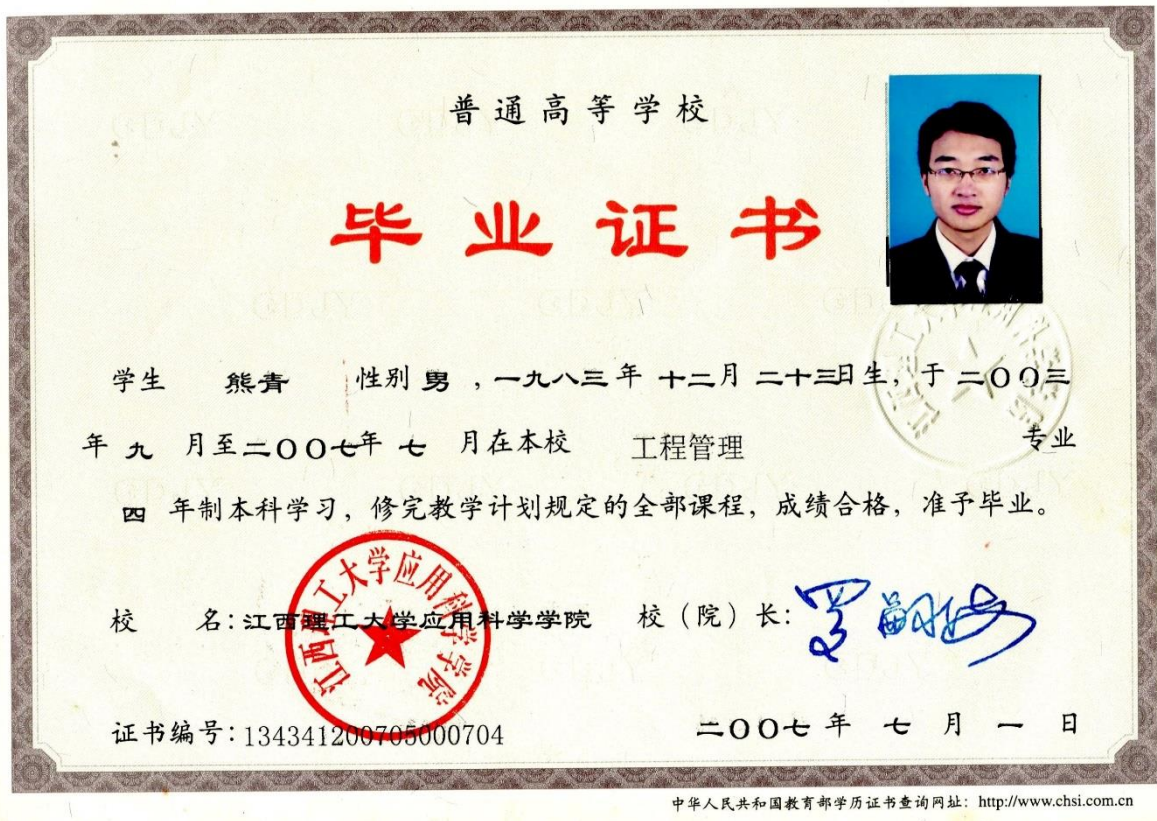 普通高等学校
毕业证书
学生 熊青 性别 男 ，一九八三年 十二月 二十三日生，于 二〇〇三
年 九 月至二〇〇七年 七 月在本校 工程管理 专业
四 年制本科学习，修完教学计划规定的全部课程，成绩合格，准予毕业。
江西理工大学应用科学学院
校 名：江西理工大学应用科学学院 校（院）长：
证书编号：134341200705000704 二〇〇七 年 七 月 一 日
中华人民共和国教育部学历证书查询网址：http://www.chsi.com.cn